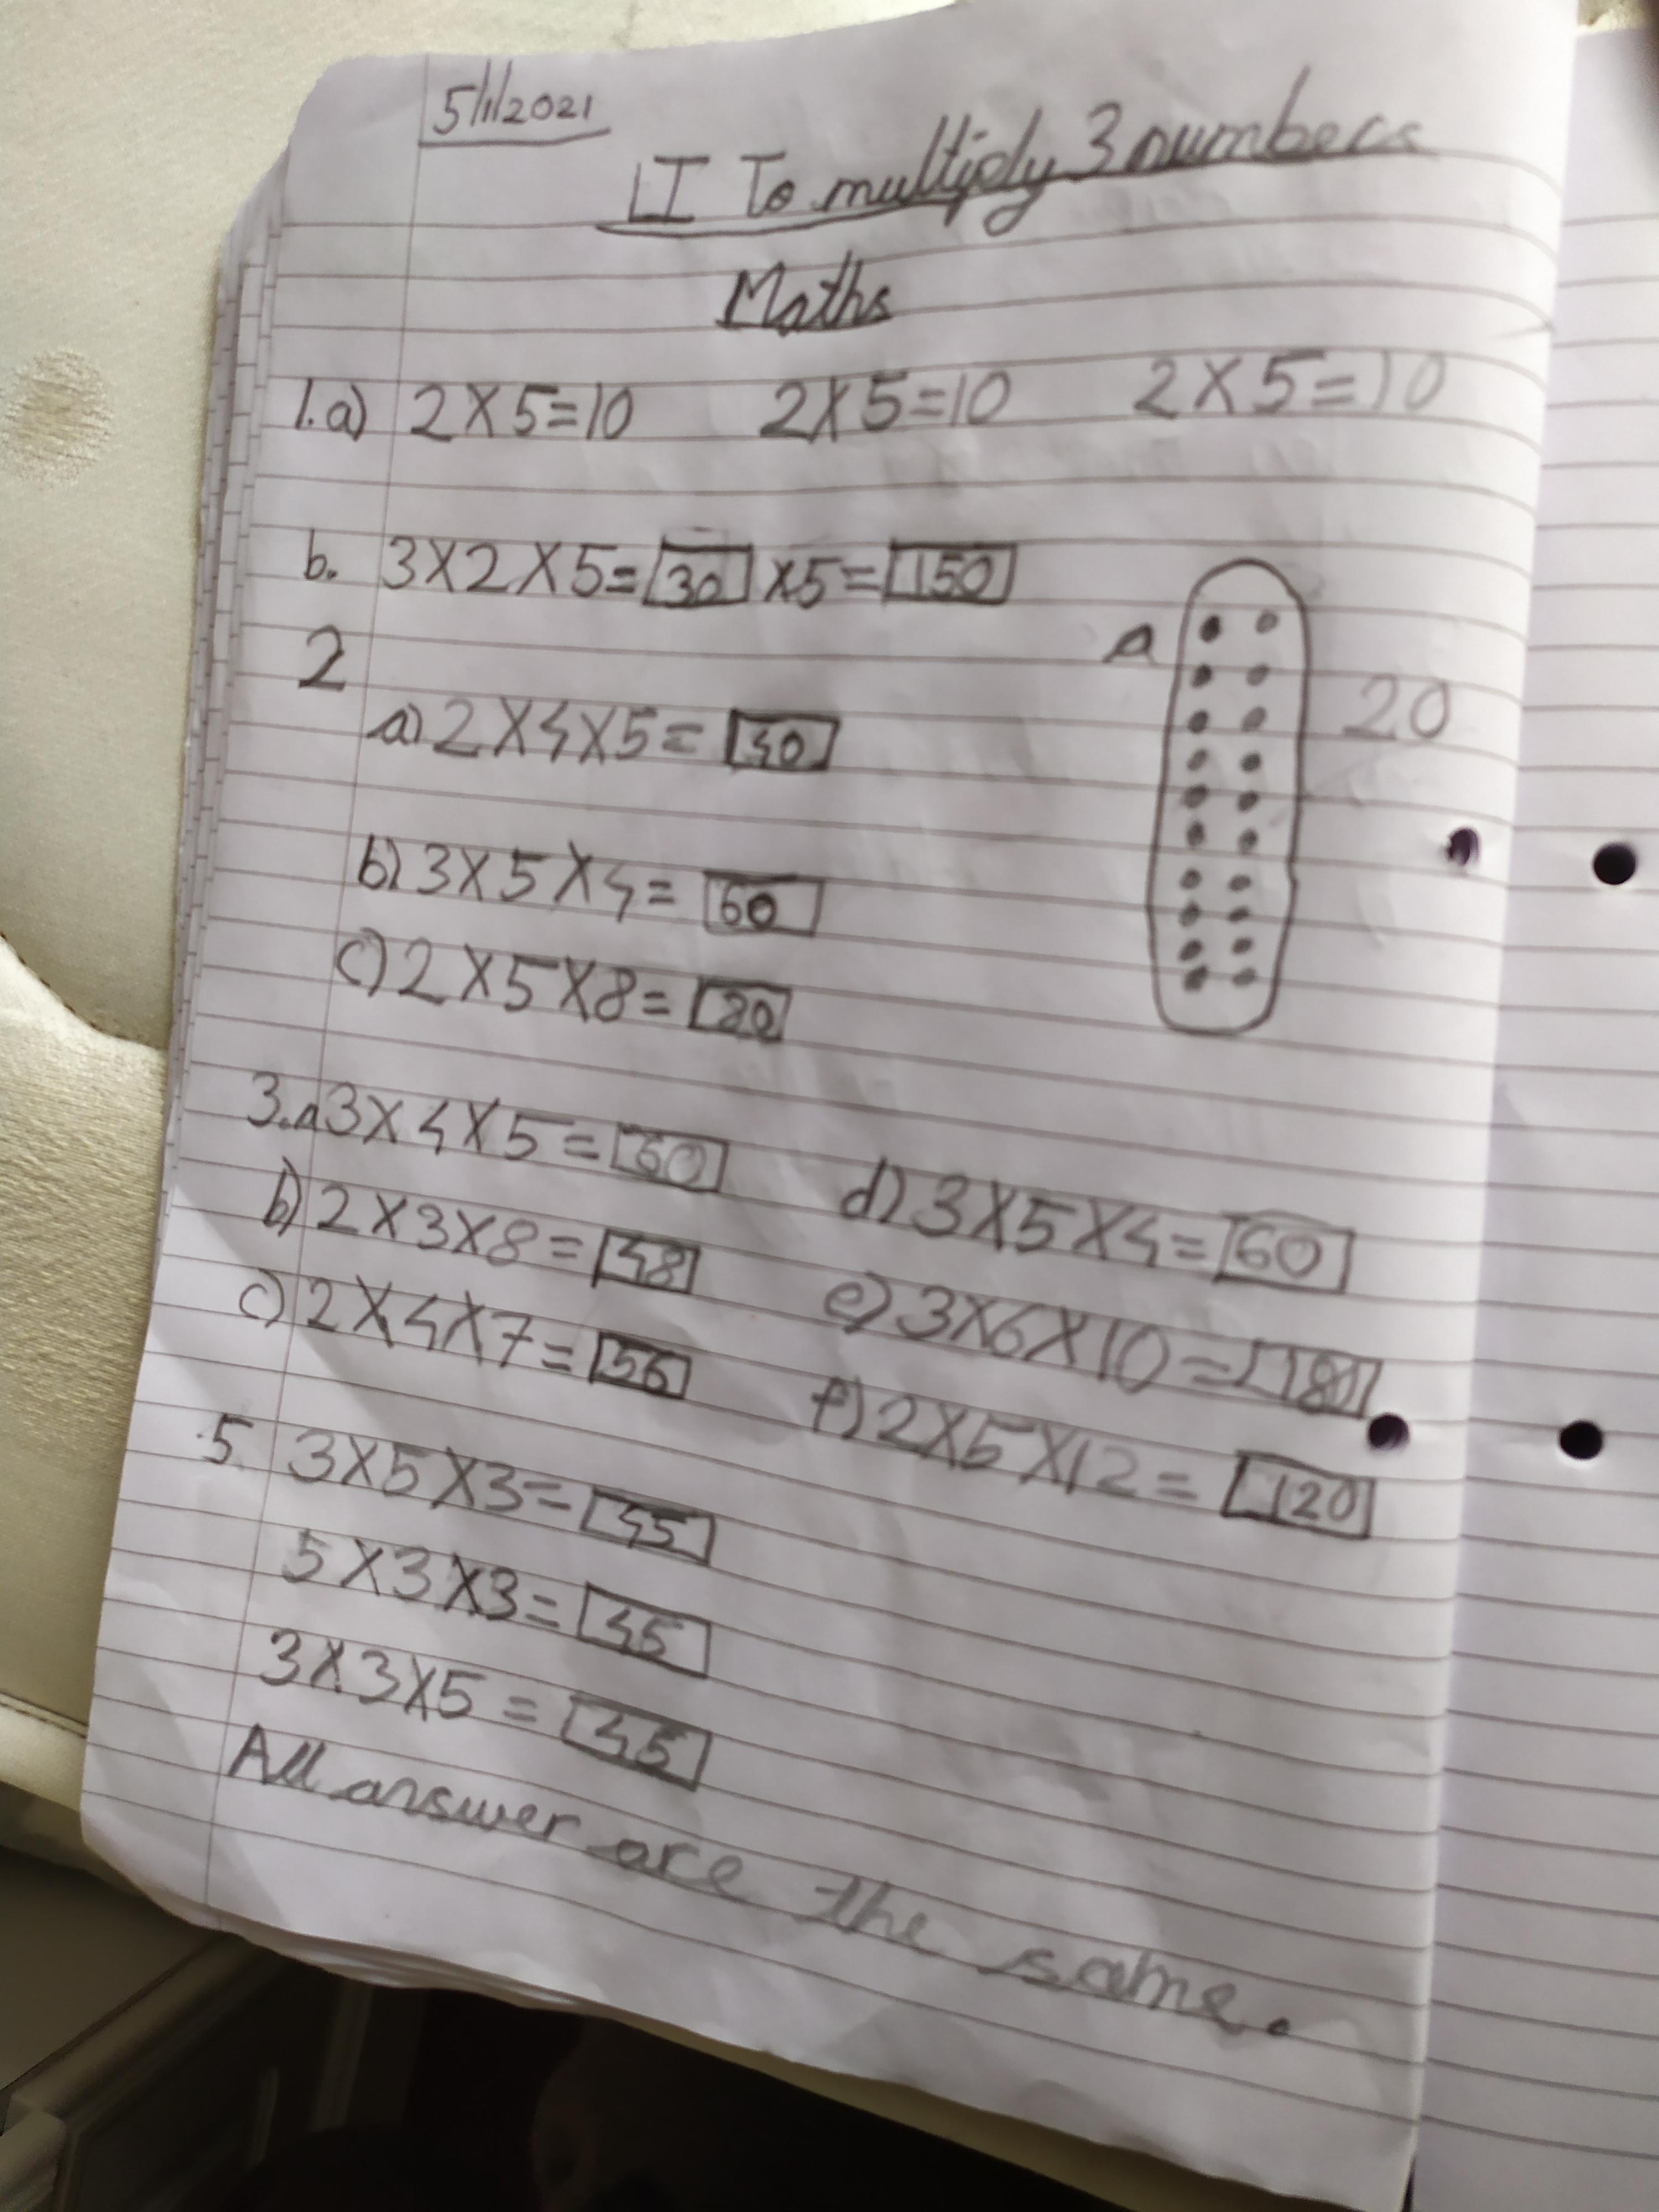 5/1/2021
LI To multiply 3 numbers
Maths
1.a) 2X5=10 2X5=10 2X5=10
b. 3X2X5=30 x5=150
2
a) 2X4X5=40
a 20
b) 3X5X4=60
c) 2X5X8=80
3.a 3X4X5=60
b) 2X3X8=48
c) 2X4X7=56
d) 3X5X4=60
e) 3X6X10=180
f) 2X5X12=120
5. 3X5X3=45
5X3X3=45
3X3X5=45
All answer are the same.